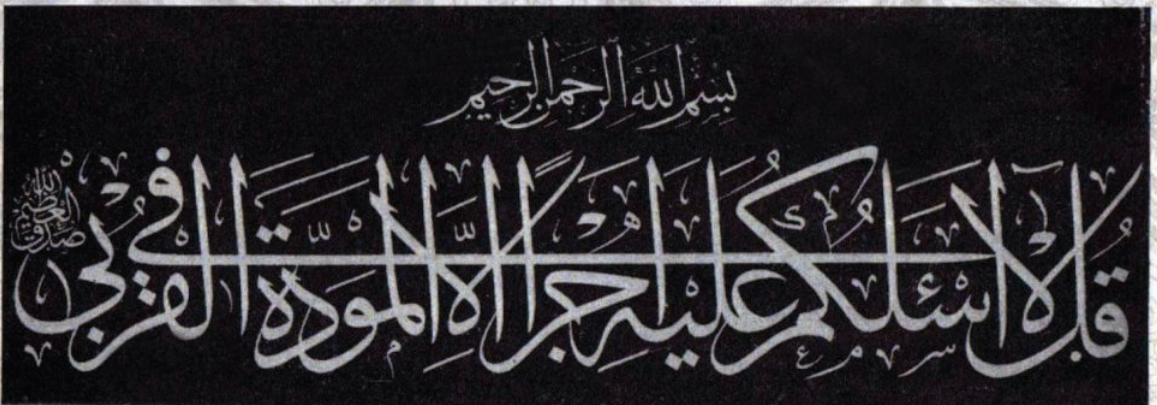 بِسْمِ اللهِ الرَّحْمنِ الرَّحِيمِ
قُل لا اسْئَلُكُم عَلَيْهِ اَجْرًا اِلاَّ الْمَوَدَّةَ فِي الْقُرْبى
صدق الله العظيم